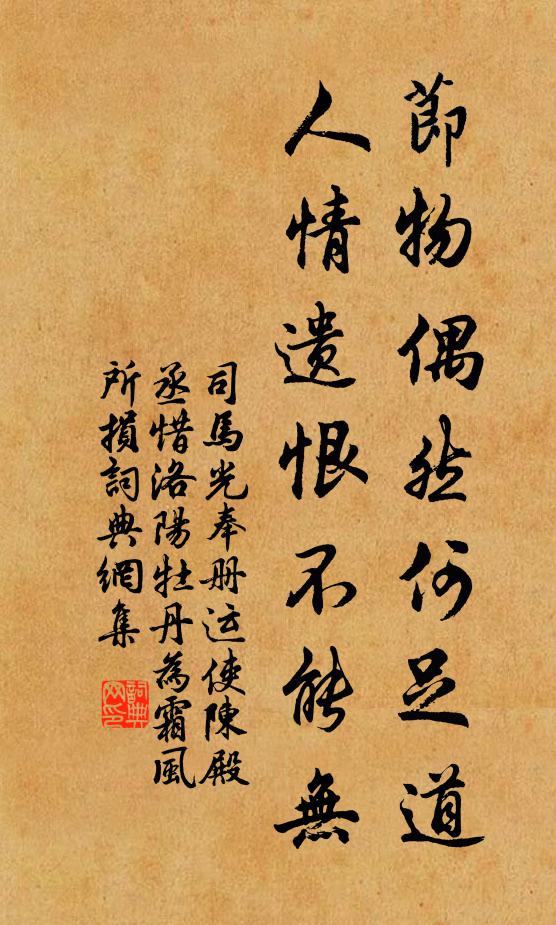 節物偶然何足道
人情遺恨不能無
司馬光奉册运使陳殿
丞惜洛陽牡丹為霜風
所損詞典網集
詞典
网印